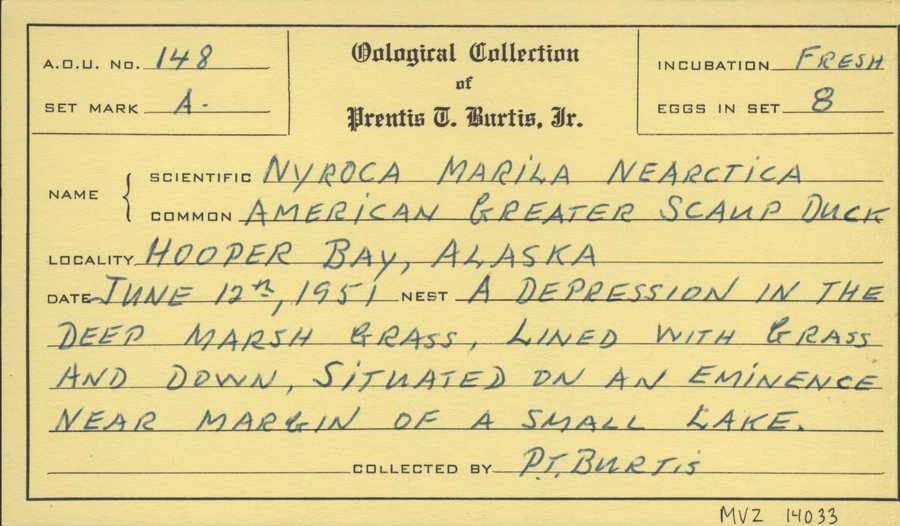 A.O.U. NO. 148
SET MARK A.
Oological Collection
of
Prentis T. Burtis, Jr.
INCUBATION FRESH
EGGS IN SET 8
NAME
SCIENTIFIC NYROCA MARILA NEARCTICA
COMMON AMERICAN GREATER SCAUP DUCK
LOCALITY HOOPER BAY, ALASKA
DATE JUNE 12th, 1951 NEST A DEPRESSION IN THE
DEEP MARSH GRASS, LINED WITH GRASS
AND DOWN, SITUATED ON AN EMINENCE
NEAR MARGIN OF A SMALL LAKE.
COLLECTED BY P.T. BURTIS
MVZ 14033